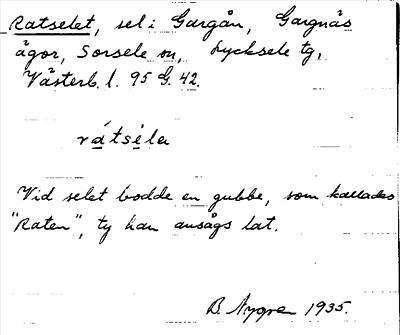 Ratselet, sel i Gargån, Gargnäs
ägor, Sorsele sn, Lycksele tg,
Västerb. l. 95 G. 42.
rátsèla
Vid selet bodde en gubbe, som kallades
"Raten", ty han ansågs lat.
B. Nygren 1935.